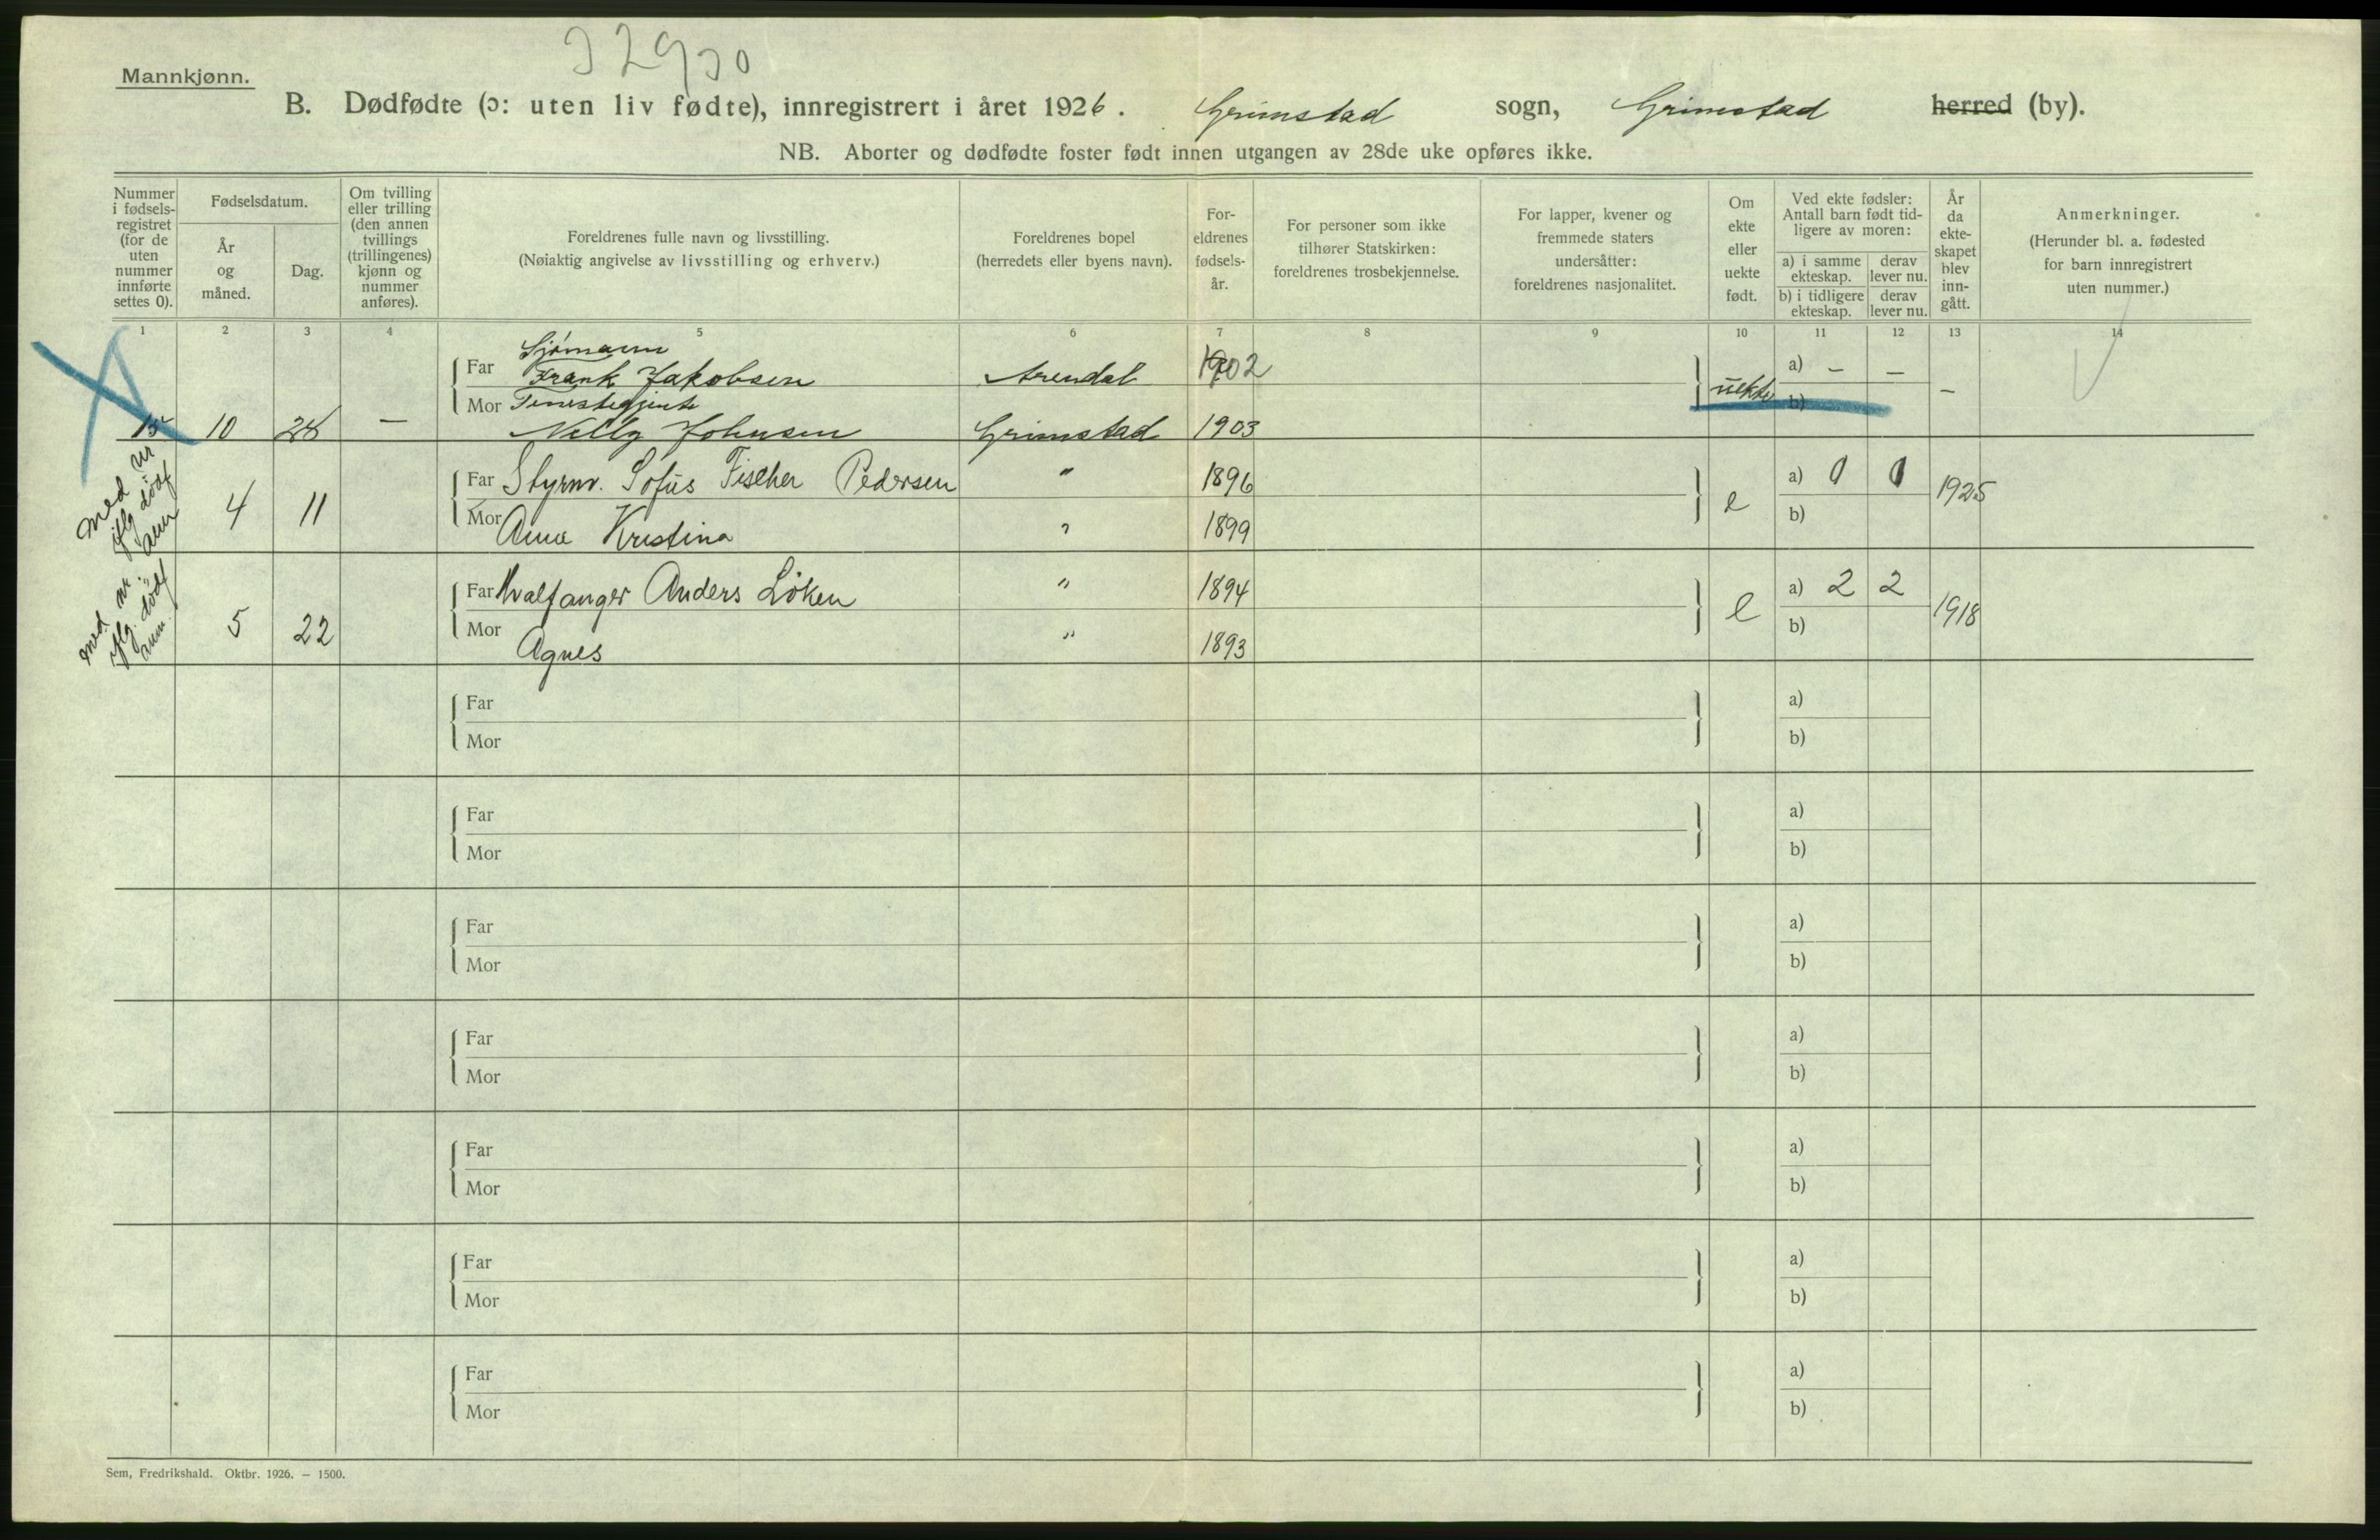 Mannkjønn.
32930
B. Dødfødte (ɔ: uten liv fødte), innregistrert i året 1926. Grimstad sogn, Grimstad herred (by).
NB. Aborter og dødfødte foster født innen utgangen av 28de uke opføres ikke.
Nummer i fødselsregistret (for de uten nummer innførte settes 0).
Fødselsdatum.
År og måned.
Dag.
Om tvilling eller trilling (den annen tvillings (trillingenes) kjønn og nummer anføres).
Foreldrenes fulle navn og livsstilling.
(Nøiaktig angivelse av livsstilling og erhverv.)
Foreldrenes bopel
(herredets eller byens navn).
Foreldrenes fødselsår.
For personer som ikke tilhører Statskirken: foreldrenes trosbekjennelse.
For lapper, kvener og fremmede staters undersåtter: foreldrenes nasjonalitet.
Om ekte eller uekte født.
Ved ekte fødsler: Antall barn født tidligere av moren:
a) i samme ekteskap. derav lever nu.
b) i tidligere ekteskap. derav lever nu.
År da ekteskapet blev inngått.
Anmerkninger.
(Herunder bl. a. fødested for barn innregistrert uten nummer.)
1 2 3 4 5 6 7 8 9 10 11 12 13 14
Sjømann
Far Frank Jakobsen Arendal 1902 uekte a) – – –
Mor Tenestegjente b)
15 10 28 – Nelly Johnsen Grimstad 1903
Far Styrm. Sofus Fischer Pedersen " 1896 e a) 0 0 1925
4 11 Mor Anna Kristina " 1899 b)
Far Hvalfanger Anders Løken " 1894 e a) 2 2 1918
5 22 Mor Agnes " 1893 b)
Far a)
Mor b)
Far a)
Mor b)
Far a)
Mor b)
Far a)
Mor b)
Far a)
Mor b)
Far a)
Mor b)
Far a)
Mor b)
Sem, Fredrikshald. Oktbr. 1926. – 1500.